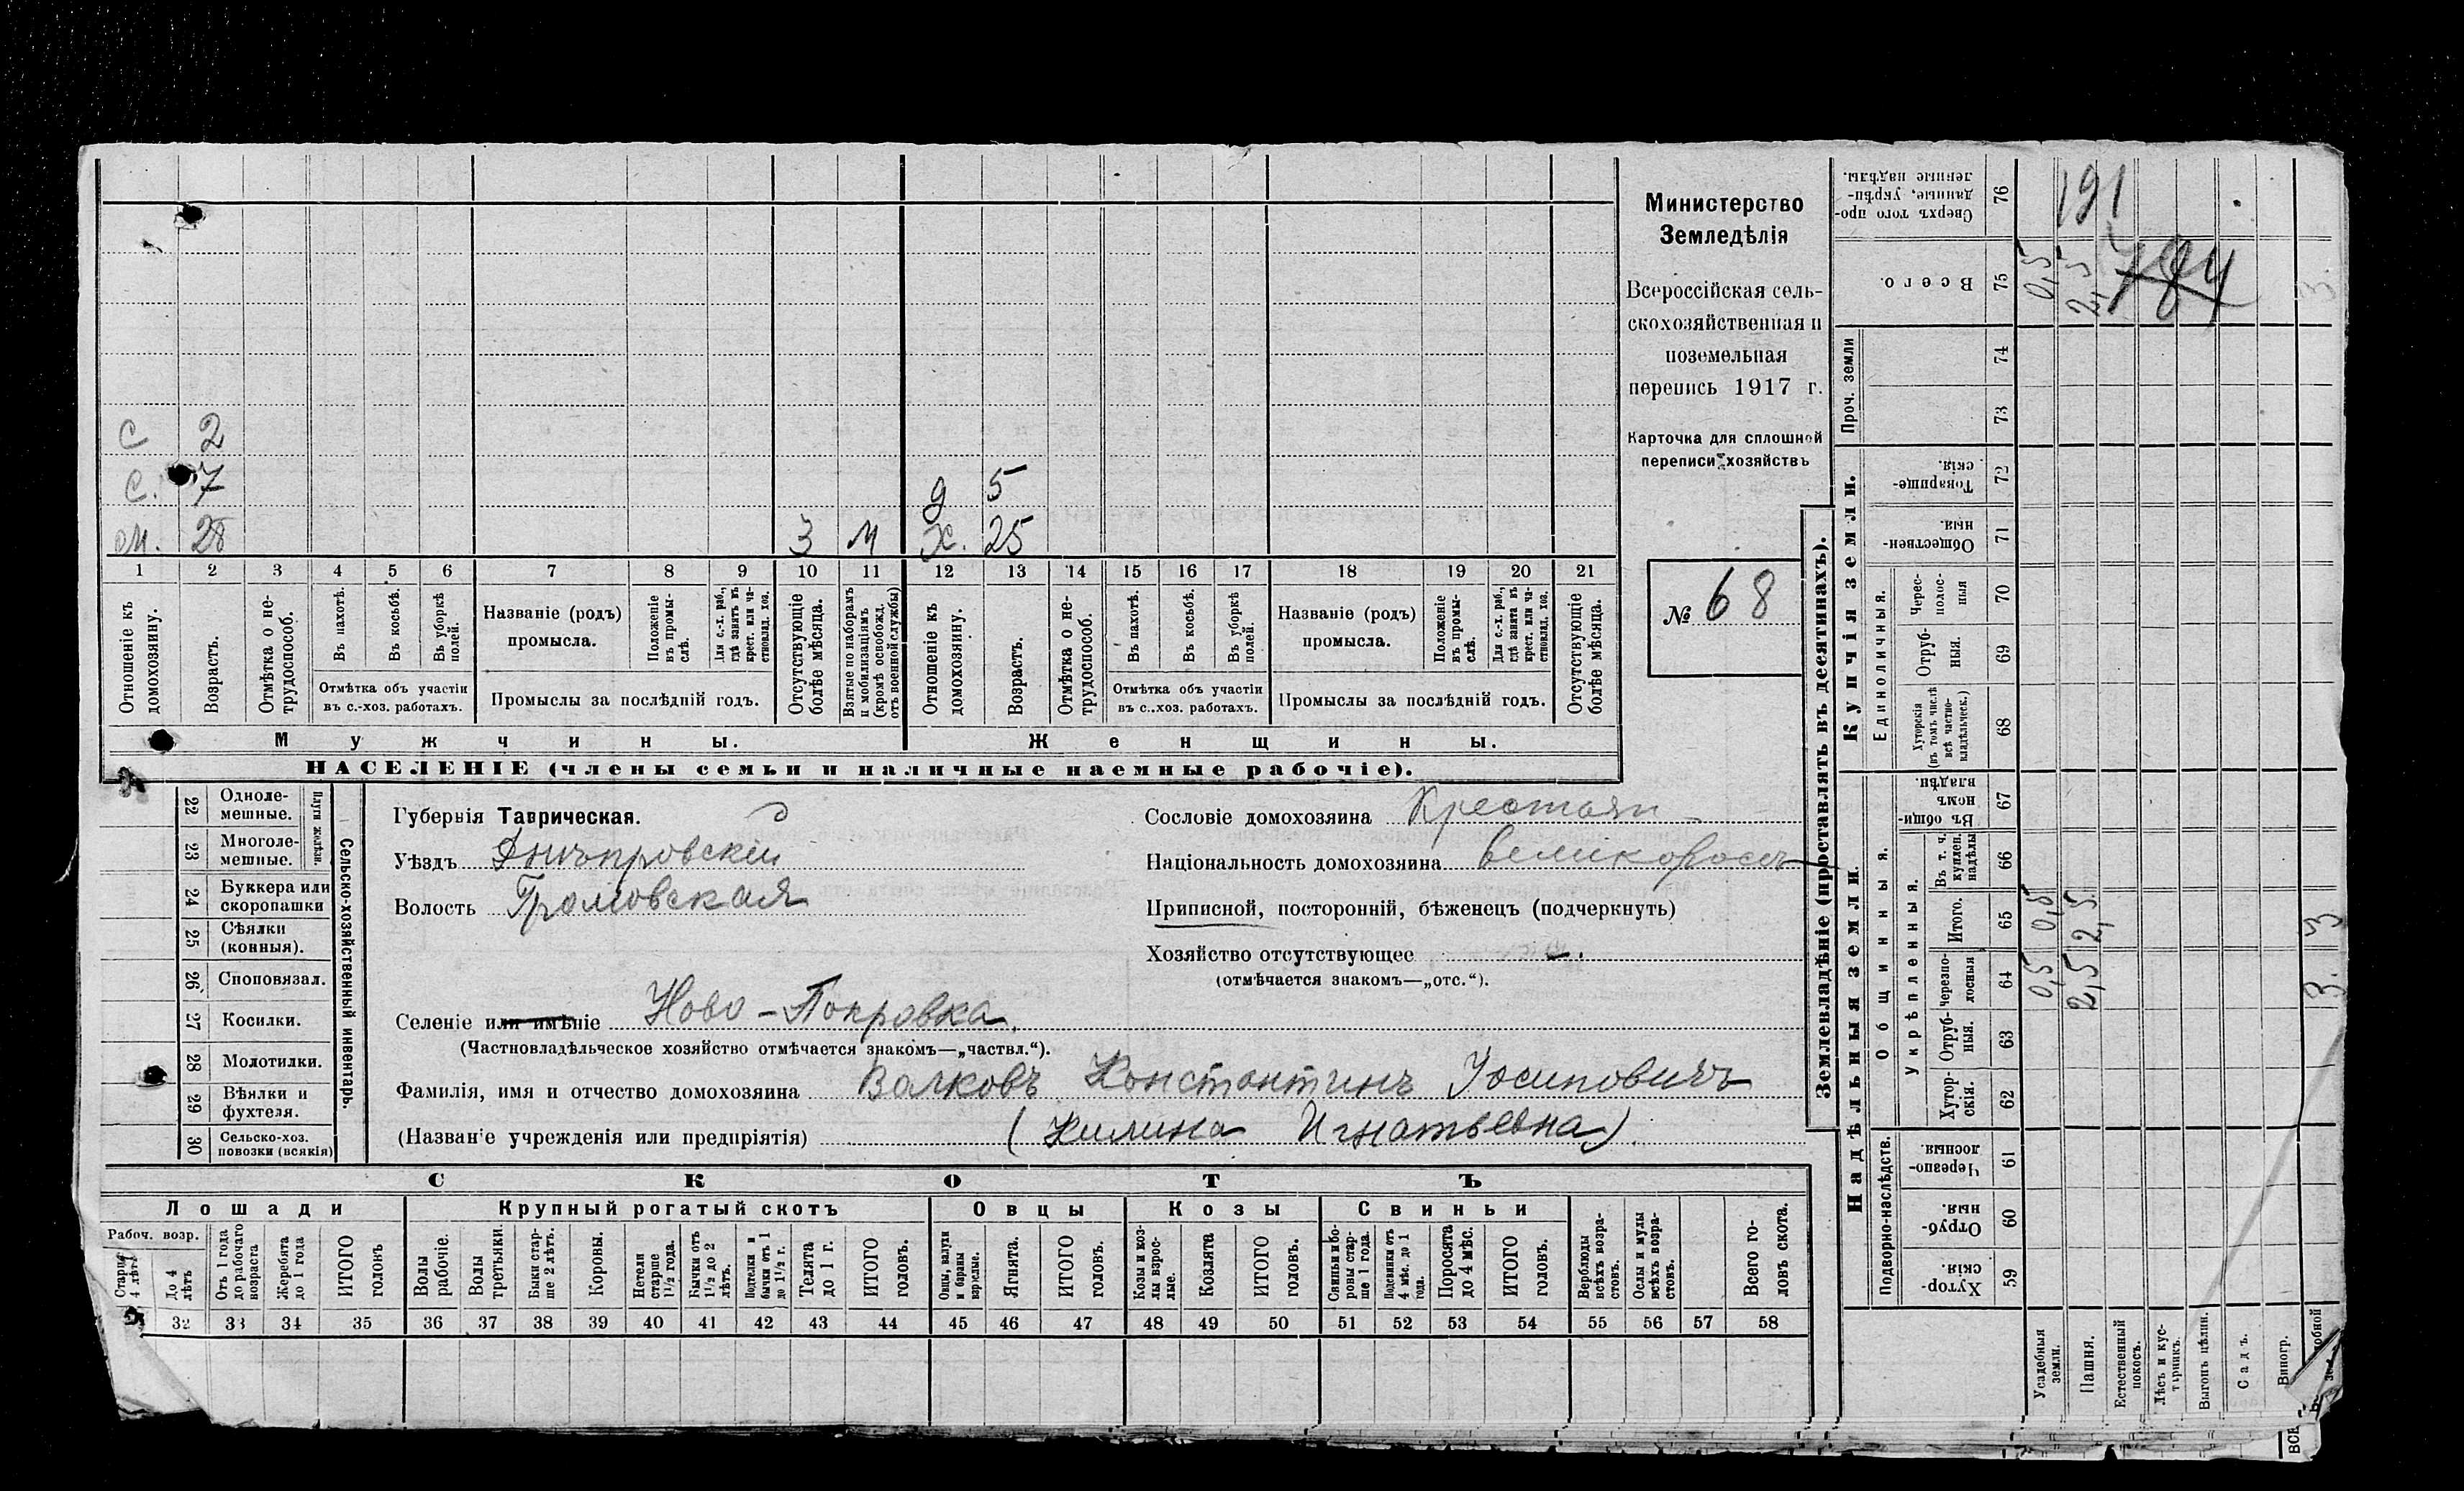 с 2
с. 7
д 5
ом. 28 3 м х. 25
1 2 3 4 5 6 7 8 9 10 11 12 13 14 15 16 17 18 19 20 21
Отношеніе къ домохозяину.
Возрастъ.
Отмѣтка о не-трудоспособ.
Въ пахотѣ.
Въ косьбѣ.
Въ уборкѣ полей.
Отмѣтка объ участіи
въ с.-хоз. работахъ.
Названіе (родъ)
промысла.
Положеніе въ промы-слѣ.
Для с.-х. раб., гдѣ занятъ въ крест. или ча-стновлад. хоз.
Промыслы за послѣдній годъ.
Отсутствующіе болѣе мѣсяца.
Взятые по наборамъ и мобилизаціямъ (кромѣ освобожд. отъ военной службы)
Отношеніе къ домохозяину.
Возрастъ.
Отмѣтка о не-трудоспособ.
Въ пахотѣ.
Въ косьбѣ.
Въ уборкѣ полей.
Отмѣтка объ участіи
въ с.-хоз. работахъ.
Названіе (родъ)
промысла.
Положеніе въ промы-слѣ.
Для с.-х. раб., гдѣ занята въ крест. или ча-стновлад. хоз.
Промыслы за послѣдній годъ.
Отсутствующіе болѣе мѣсяца.
Мужчины. Женщины.
НАСЕЛЕНІЕ (члены семьи и наличные наемные рабочіе).
Министерство
Земледѣлія
Всероссійская сель-
скохозяйственная и
поземельная
перепись 1917 г.
Карточка для сплошной
переписи хозяйствъ
№ 68
22 Одноле-мешные.
23 Многоле-мешные.
Плуги желѣзн.
24 Буккера или скоропашки
25 Сѣялки (конныя).
26 Сноповязал.
27 Косилки.
28 Молотилки.
29 Вѣялки и фухтеля.
30 Сельско-хоз. повозки (всякія)
Сельско-хозяйственный инвентарь.
Губернія Таврическая.
Уѣздъ Днѣпровскій
Волость Громовская
Сословіе домохозяина Крестьян
Національность домохозяина великороссъ
Приписной, посторонній, бѣженецъ (подчеркнуть)
Хозяйство отсутствующее
(отмѣчается знакомъ—„отс.“).
Селеніе или имѣніе Ново-Покровка.
(Частновладѣльческое хозяйство отмѣчается знакомъ—„частвл.“).
Фамилія, имя и отчество домохозяина Волковъ Константинъ Иосиповичъ
(Названіе учрежденія или предпріятія) (Килина Игнатьевна)
СКОТЪ
Лошади Крупный рогатый скотъ Овцы Козы Свиньи
Рабоч. возр.
Старше 4 лѣтъ
До 4 лѣтъ
Отъ 1 года до рабочаго возраста
Жеребята до 1 года
ИТОГО головъ
Волы рабочіе.
Волы третьяки.
Быки стар-ше 2 лѣтъ.
Коровы.
Нетели старше 1½ года.
Бычки отъ 1½ до 2 лѣтъ.
Подтелки и бычки отъ 1 до 1½ г.
Телята до 1 г.
ИТОГО головъ.
Овцы, валухи и бараны взрослые.
Ягнята.
ИТОГО головъ.
Козы и коз-лы взрос-лые.
Козлята
ИТОГО головъ.
Свиньи и бо-ровы стар-ше 1 года.
Подсвинки отъ 4 мѣс. до 1 года.
Поросята до 4 мѣс.
ИТОГО головъ.
Верблюды всѣхъ возра-стовъ.
Ослы и мулы всѣхъ возра-стовъ.
Всего го-ловъ скота.
32 33 34 35 36 37 38 39 40 41 42 43 44 45 46 47 48 49 50 51 52 53 54 55 56 57 58
Землевладѣніе (проставлять въ десятинахъ).
Сверхъ того про-данные, укрѣп-ленные надѣлы. 76 191
Всего. 75 0,5 2,5 784 3.
Проч. земли
74
73
Купчія земли.
Товарище-скія. 72
Обществен-ныя. 71
Единоличныя.
Черес-полос-ныя 70
Отруб-ныя. 69
Хуторскія (въ томъ числѣ всѣ частно-владѣльческ.) 68
Надѣльныя земли.
Общинныя.
Въ общи-номъ владѣн. 67
Укрѣпленныя.
Въ т. ч. куплен. надѣлы 66
Итого. 65 0,5 2,5. 3
Черезпо-лосныя 64 0,5 2,5 3.
Отруб-ныя. 63
Хутор-скія. 62
Подворно-наслѣдств.
Черезпо-лосныя. 61
Отруб-ныя. 60
Хутор-скія. 59
Усадебныя земли.
Пашня.
Естественный покосъ.
Лѣсъ и кус-тарникъ.
Выгонъ цѣлин.
Садъ.
Виногр.